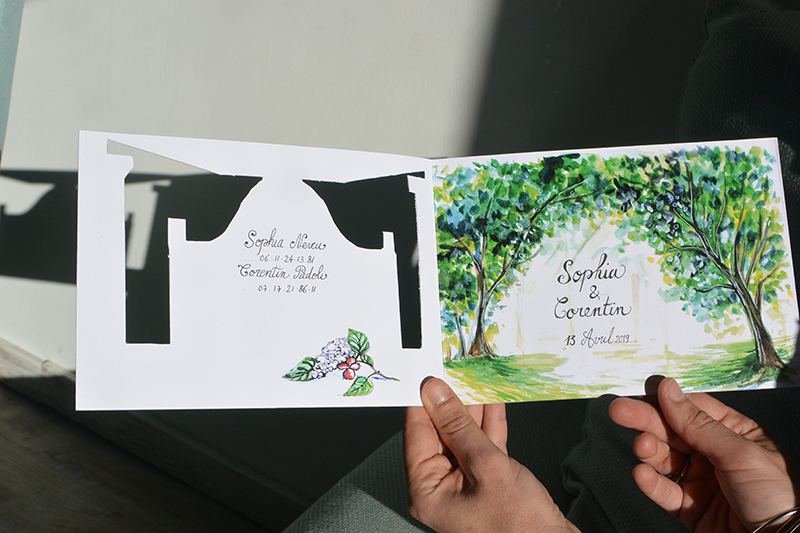 Sophia Nercu
06.11.24.13.81
Corentin Padole
07.17.21.86.11
Sophia
&
Corentin
13 Avril 2019